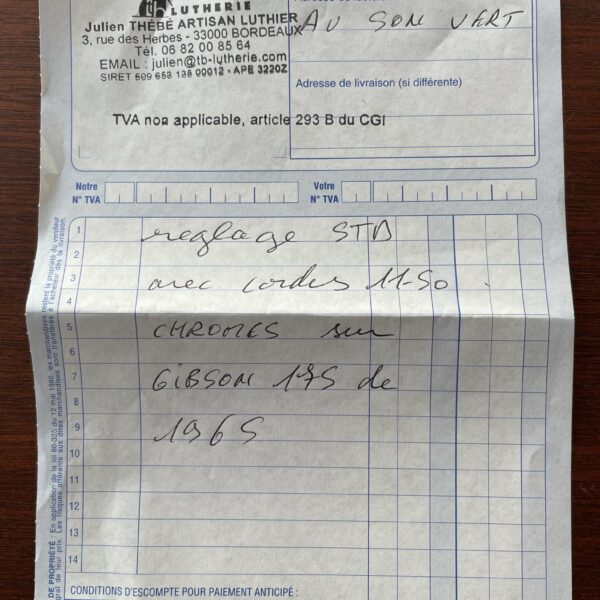 tb LUTHERIE
Julien THÉBÉ ARTISAN LUTHIER
3, rue des Herbes - 33000 BORDEAUX
Tél. 06 82 00 85 64
EMAIL : julien@tb-lutherie.com
SIRET 509 653 136 00012 - APE 3220Z
TVA non applicable, article 293 B du CGI
AU SON VERT
Adresse de livraison (si différente)
Notre
N° TVA
Votre
N° TVA
1
2
3
4
5
6
7
8
9
10
11
12
13
14
reglage STD
avec cordes 11-50.
CHROMES sur
GIBSON 175 de
1965
CONDITIONS D'ESCOMPTE POUR PAIEMENT ANTICIPÉ :
DE PROPRIÉTÉ : En application de la loi 80-335 du 12 mai 1980, les marchandises restent la propriété du vendeur
gral de leur prix. Les risques afférents aux dites marchandises sont transférés à l'acheteur dès la livraison.